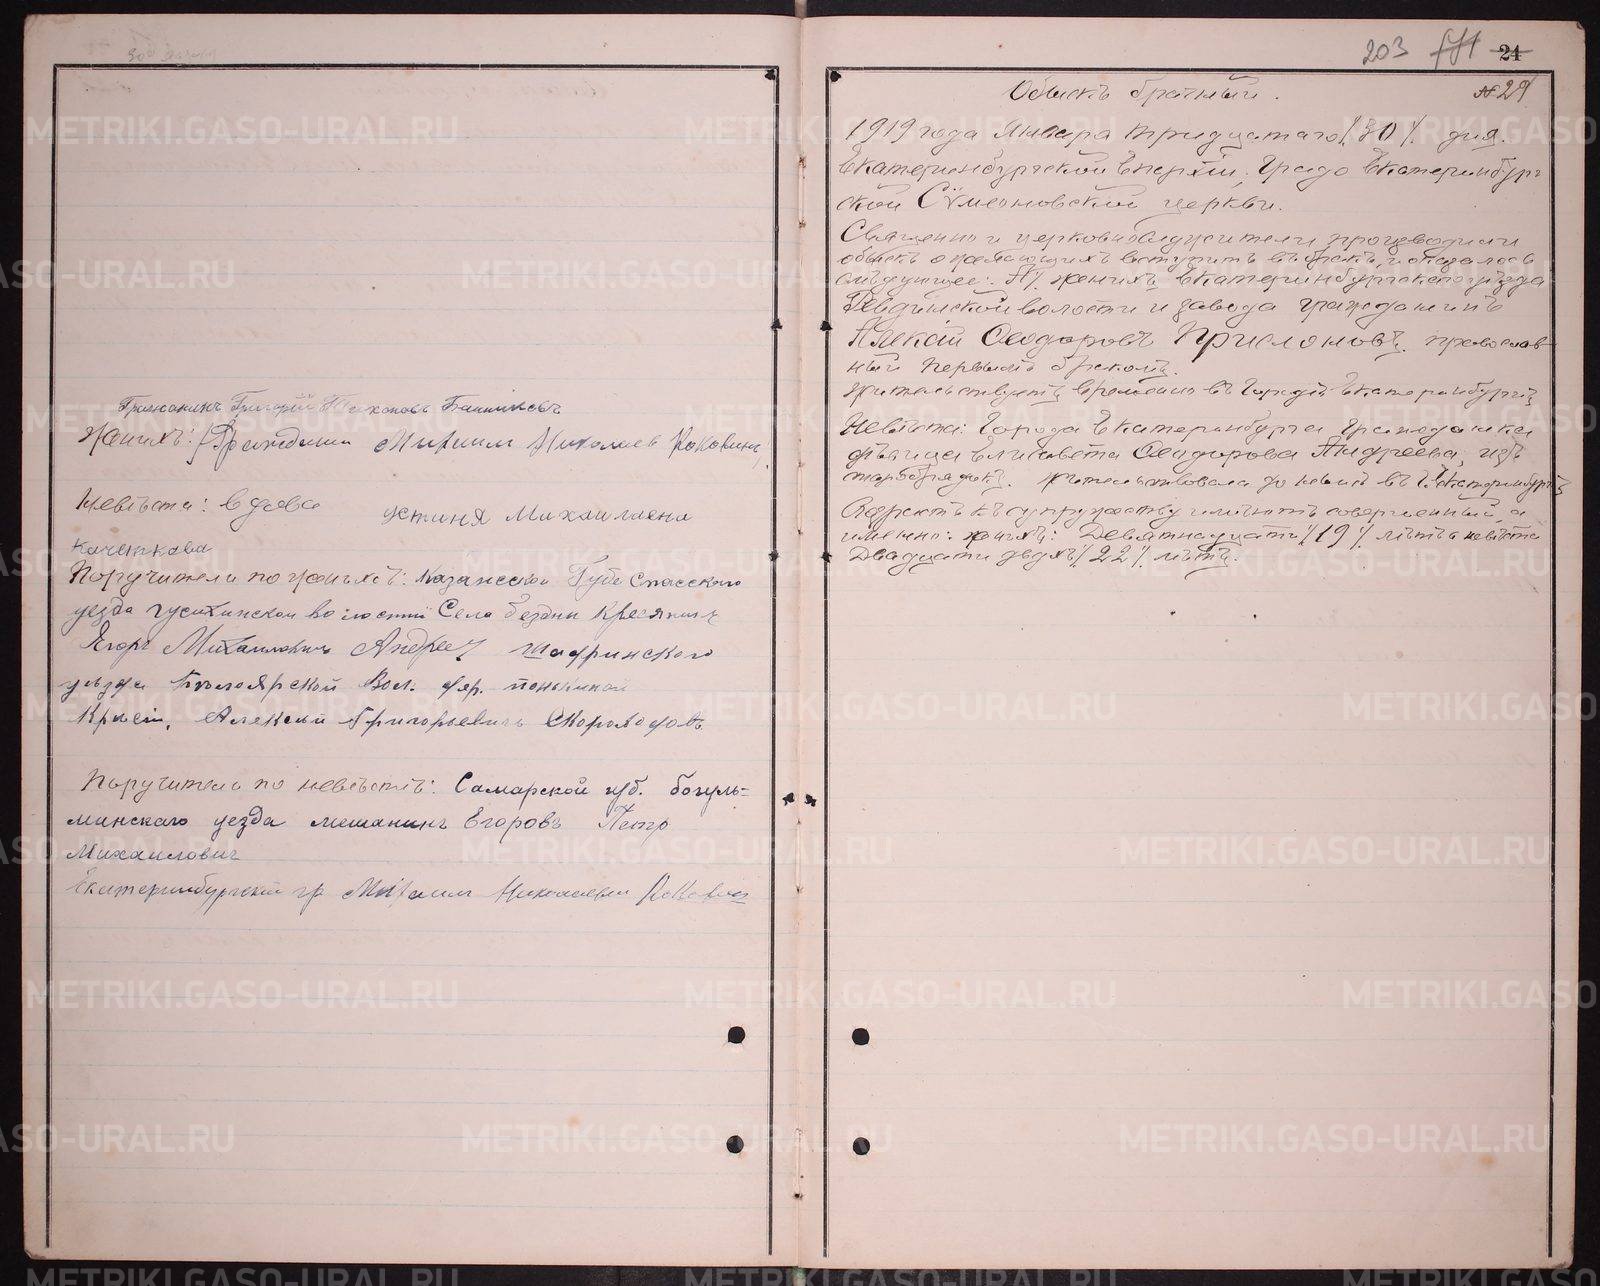 Гражданинъ Григорій Тихоновъ
Женихъ: Гражданинъ Михаилъ Николаев Роковинъ,
Невѣста: вдова Устиня Михаиловна
Каченкова
Поручители по женихѣ: Казанской Губ. Спасскаго
уезда волостй Села бездны Кресянинъ
Егоръ Михаиловичъ Андреев шадринского
уѣзда Бѣлоярской Вол. дер.
Крест. Алексѣй Григорьевичъ Скороходовъ
Поручители по невѣстѣ: Самарской губ. богуль-
минскаго уезда мещанинъ Егоровъ Петр
Михаилович
Екатеринбургскій гр Михаилъ Николаевич Роковин
203 24
Обыскъ брачный. №29
1919 года Января тридцатаго /30/ дня.
Екатеринбургской Епархіи, Градо Екатеринбург
ской Сѵмеоновской церкви.
Священно и церковнослужители производили
обыскъ о желающихъ вступить въ бракъ, и оказалось
слѣдующее: А/ женихъ Екатеринбургскаго уѣзда
Ревдинской волости и завода гражданинъ
Алексій Ѳеодоровъ Прислоновъ. православ-
ный первымъ бракомъ.
жительствуетъ временно въ городѣ Екатеринбургѣ
Невѣста: Города Екатеринбурга гражданка
дѣвица Елисавета Ѳеодорова Андреева, изъ
жительствовала до нынѣ въ г. Екатеринбургѣ
Возрастъ къ супружеству имѣютъ совершенный, а
именно: женихъ: Девятнадцати /19/ лѣтъ а невѣста
Двадцати двухъ /22/ лѣтъ.
METRIKI.GASO-URAL.RU